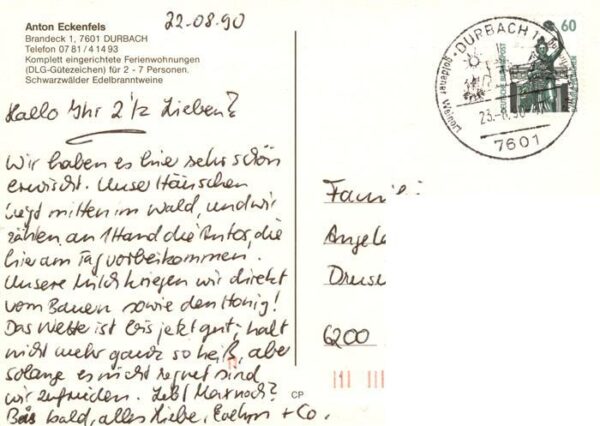 Anton Eckenfels
Brandeck 1, 7601 DURBACH
Telefon 07 81 / 4 14 93
Komplett eingerichtete Ferienwohnungen
(DLG-Gütezeichen) für 2 - 7 Personen.
Schwarzwälder Edelbranntweine
22.08.90
Hallo Ihr 2 1/2 Lieben?
Wir haben es hier sehr schön
erwischt. Unser Häuschen
liegt mitten im Wald, und wir
zählen an 1 Hand die Autos, die
hier am Tag vorbeikommen.
Unsere Milch kriegen wir direkt
vom Bauern sowie den Honig!
Das Wetter ist bis jetzt gut; halt
nicht mehr ganz so heiß, aber
solange es nicht regnet sind
wir zufrieden. Lebt Max noch?
Bis bald, alles Liebe, Evelyn + Co.
CP
DURBACH 1
7601
60
DEUTSCHE BUNDESPOST
Famili
Angela
6200